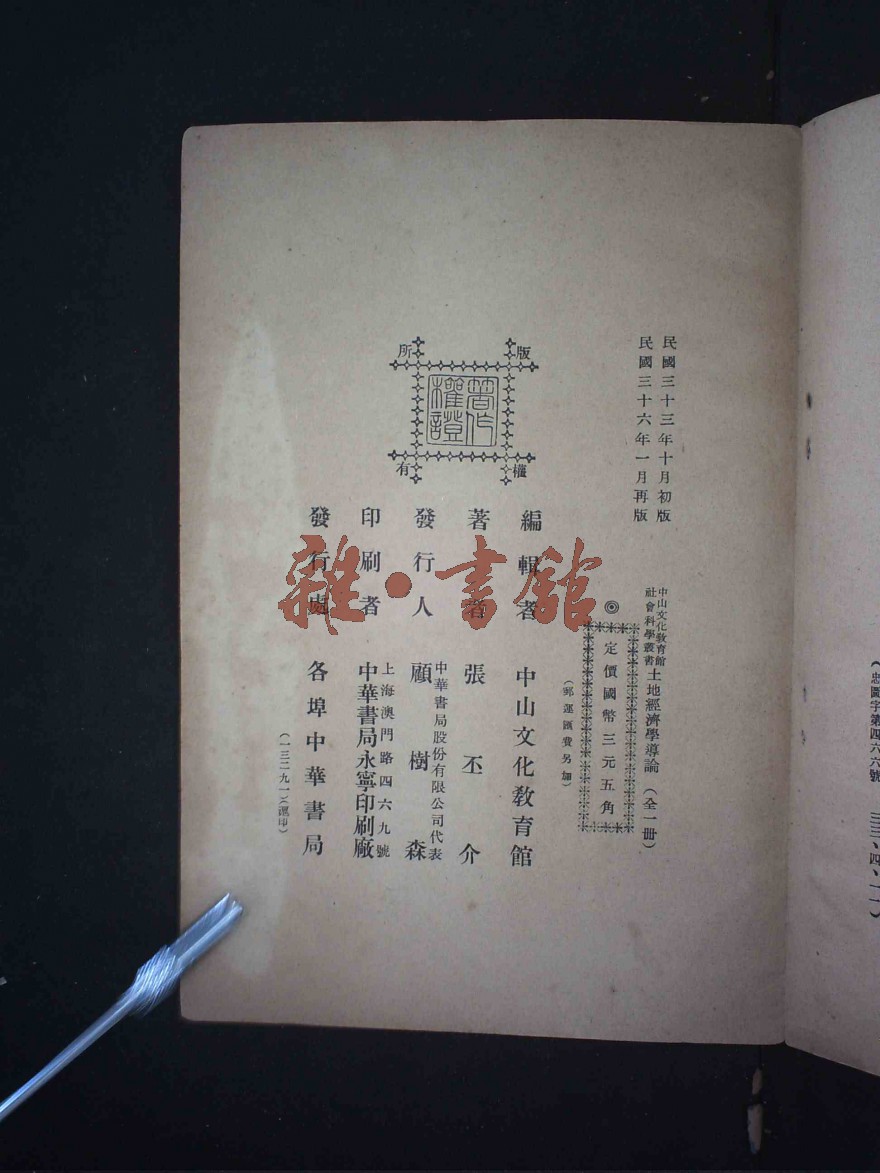 (忠圖字第四六六號 三三、四、一一)
民國三十三年十月初版
民國三十六年一月再版
中山文化教育館
社會科學叢書
土地經濟學導論(全一册)
◎定價國幣三元五角
(郵運匯費另加)
版權所有
著作權證
編輯者 中山文化教育館
著者 張丕介
發行人 中華書局股份有限公司代表
顧樹森
印刷者 上海澳門路四六九號
中華書局永寧印刷廠
發行處 各埠中華書局
(一三二九一)(滬印)
雜·書館